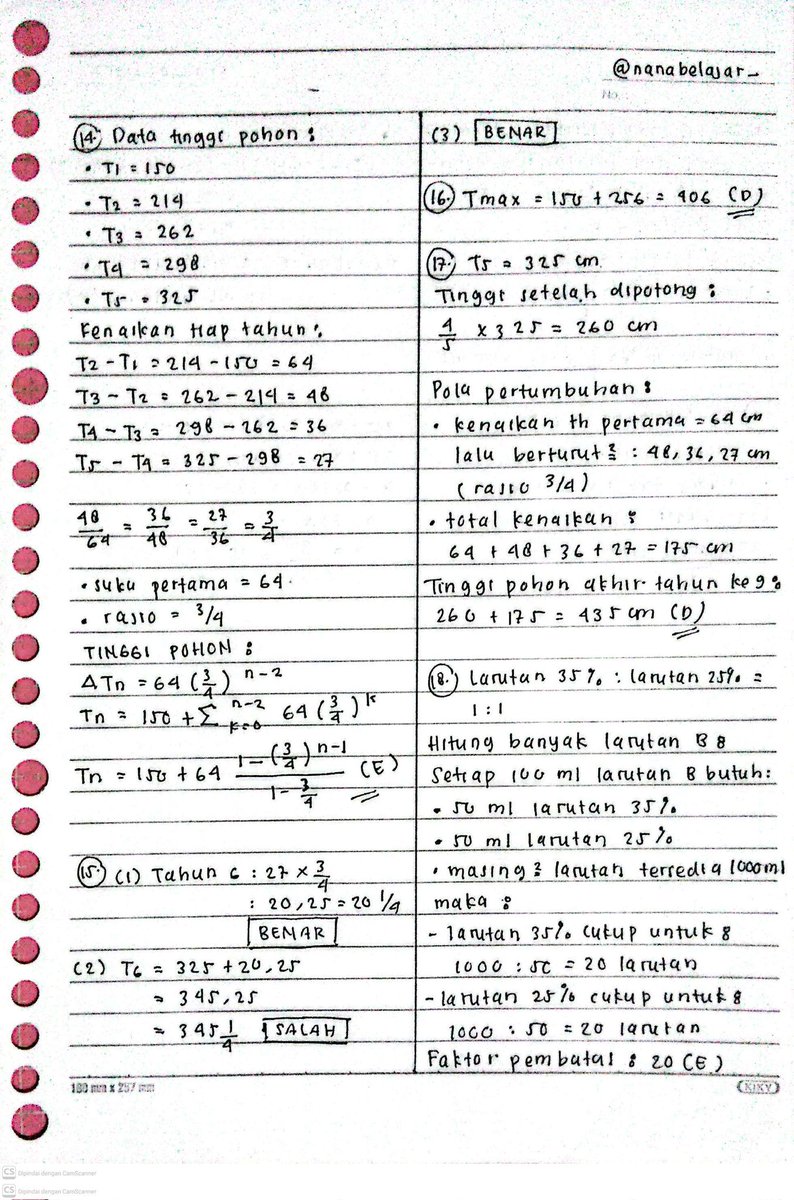 @nanabelajar_
No.
14. Data tinggi pohon :
• T1 = 150
• T2 = 214
• T3 = 262
• T4 = 298
• T5 = 325
Kenaikan tiap tahun :
T2 - T1 = 214 - 150 = 64
T3 - T2 = 262 - 214 = 48
T4 - T3 = 298 - 262 = 36
T5 - T4 = 325 - 298 = 27
48/64 = 36/48 = 27/36 = 3/4
• suku pertama = 64
• rasio = 3/4
TINGGI POHON :
ΔTn = 64 (3/4)^n-2
Tn = 150 + Σ^n-2 k=0 64 (3/4)^k
Tn = 150 + 64 1-(3/4)^n-1 / 1-3/4 (E)
15. (1) Tahun 6 : 27 × 3/4
: 20,25 = 20 1/4
BENAR
(2) T6 = 325 + 20,25
= 345,25
= 345 1/4 SALAH
(3) BENAR
16. Tmax = 150 + 256 = 406 (D)
17. T5 = 325 cm
Tinggi setelah dipotong :
4/5 × 325 = 260 cm
Pola pertumbuhan :
• kenaikan th pertama = 64 cm
lalu berturut² : 48, 36, 27 cm
(rasio 3/4)
• total kenaikan :
64 + 48 + 36 + 27 = 175 cm
Tinggi pohon akhir tahun ke 9 :
260 + 175 = 435 cm (D)
18. Larutan 35% : larutan 25% =
1 : 1
Hitung banyak larutan B :
Setiap 100 ml larutan B butuh :
• 50 ml larutan 35%
• 50 ml larutan 25%
• masing² larutan tersedia 1000 ml
maka :
- larutan 35% cukup untuk :
1000 : 50 = 20 larutan
- larutan 25% cukup untuk :
1000 : 50 = 20 larutan
Faktor pembatas : 20 (E)
180 mm x 257 mm
KIKY
CS Dipindai dengan CamScanner
CS Dipindai dengan CamScanner